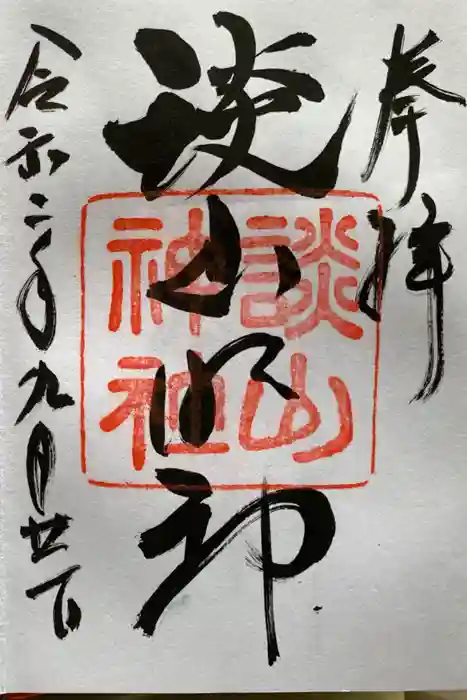 奉拝
談山明神
談山
神社
令和二年九月廿一日